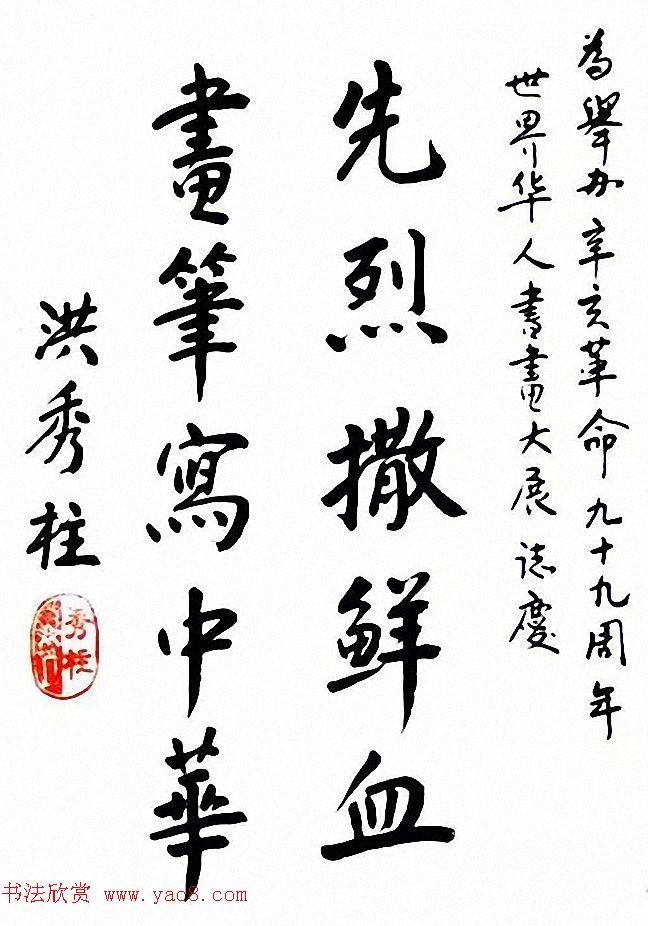 為舉办辛亥革命九十九周年
世界华人書畫大展誌慶
先烈撒鲜血
畫筆寫中華
洪秀柱
秀柱
书法欣赏 www.yac8.com